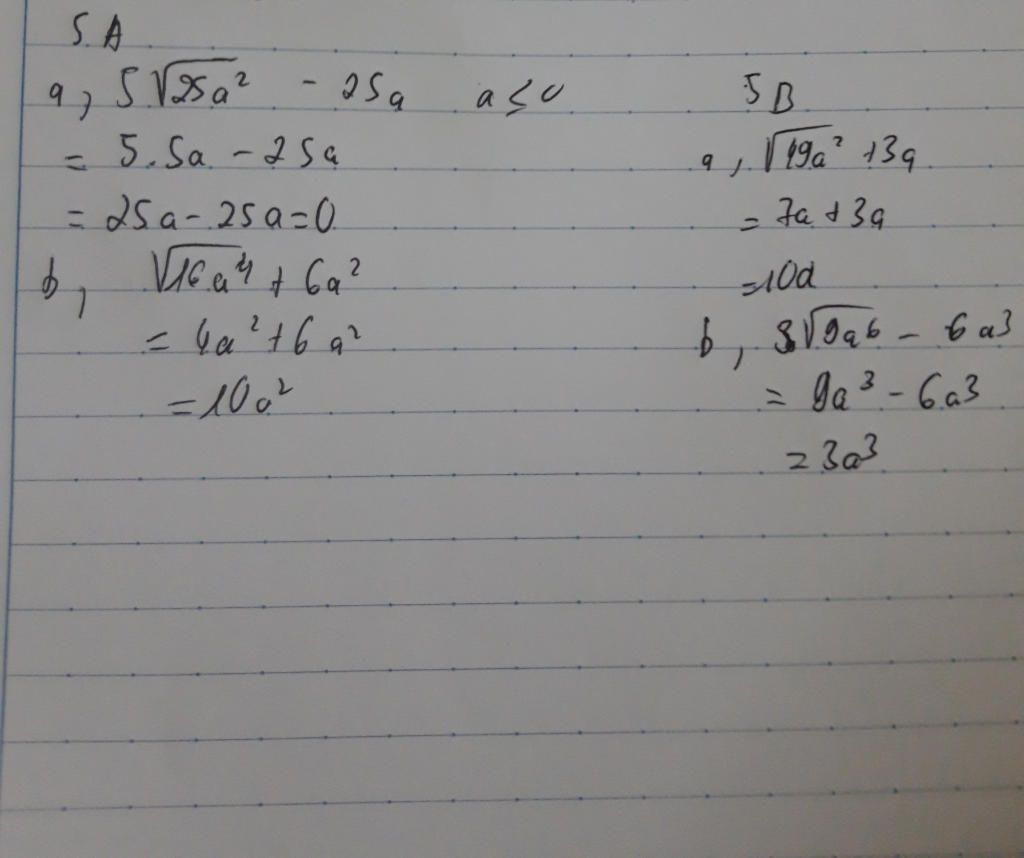 5.A
a, 5√25a² - 25a a ≤ 0
= 5.5a - 25a
= 25a - 25a = 0
b, √16a⁴ + 6a²
= 4a² + 6a²
= 10a²
5B
a, √49a² + 3a
= 7a + 3a
= 10a
b, 3√9a⁶ - 6a³
= 9a³ - 6a³
= 3a³